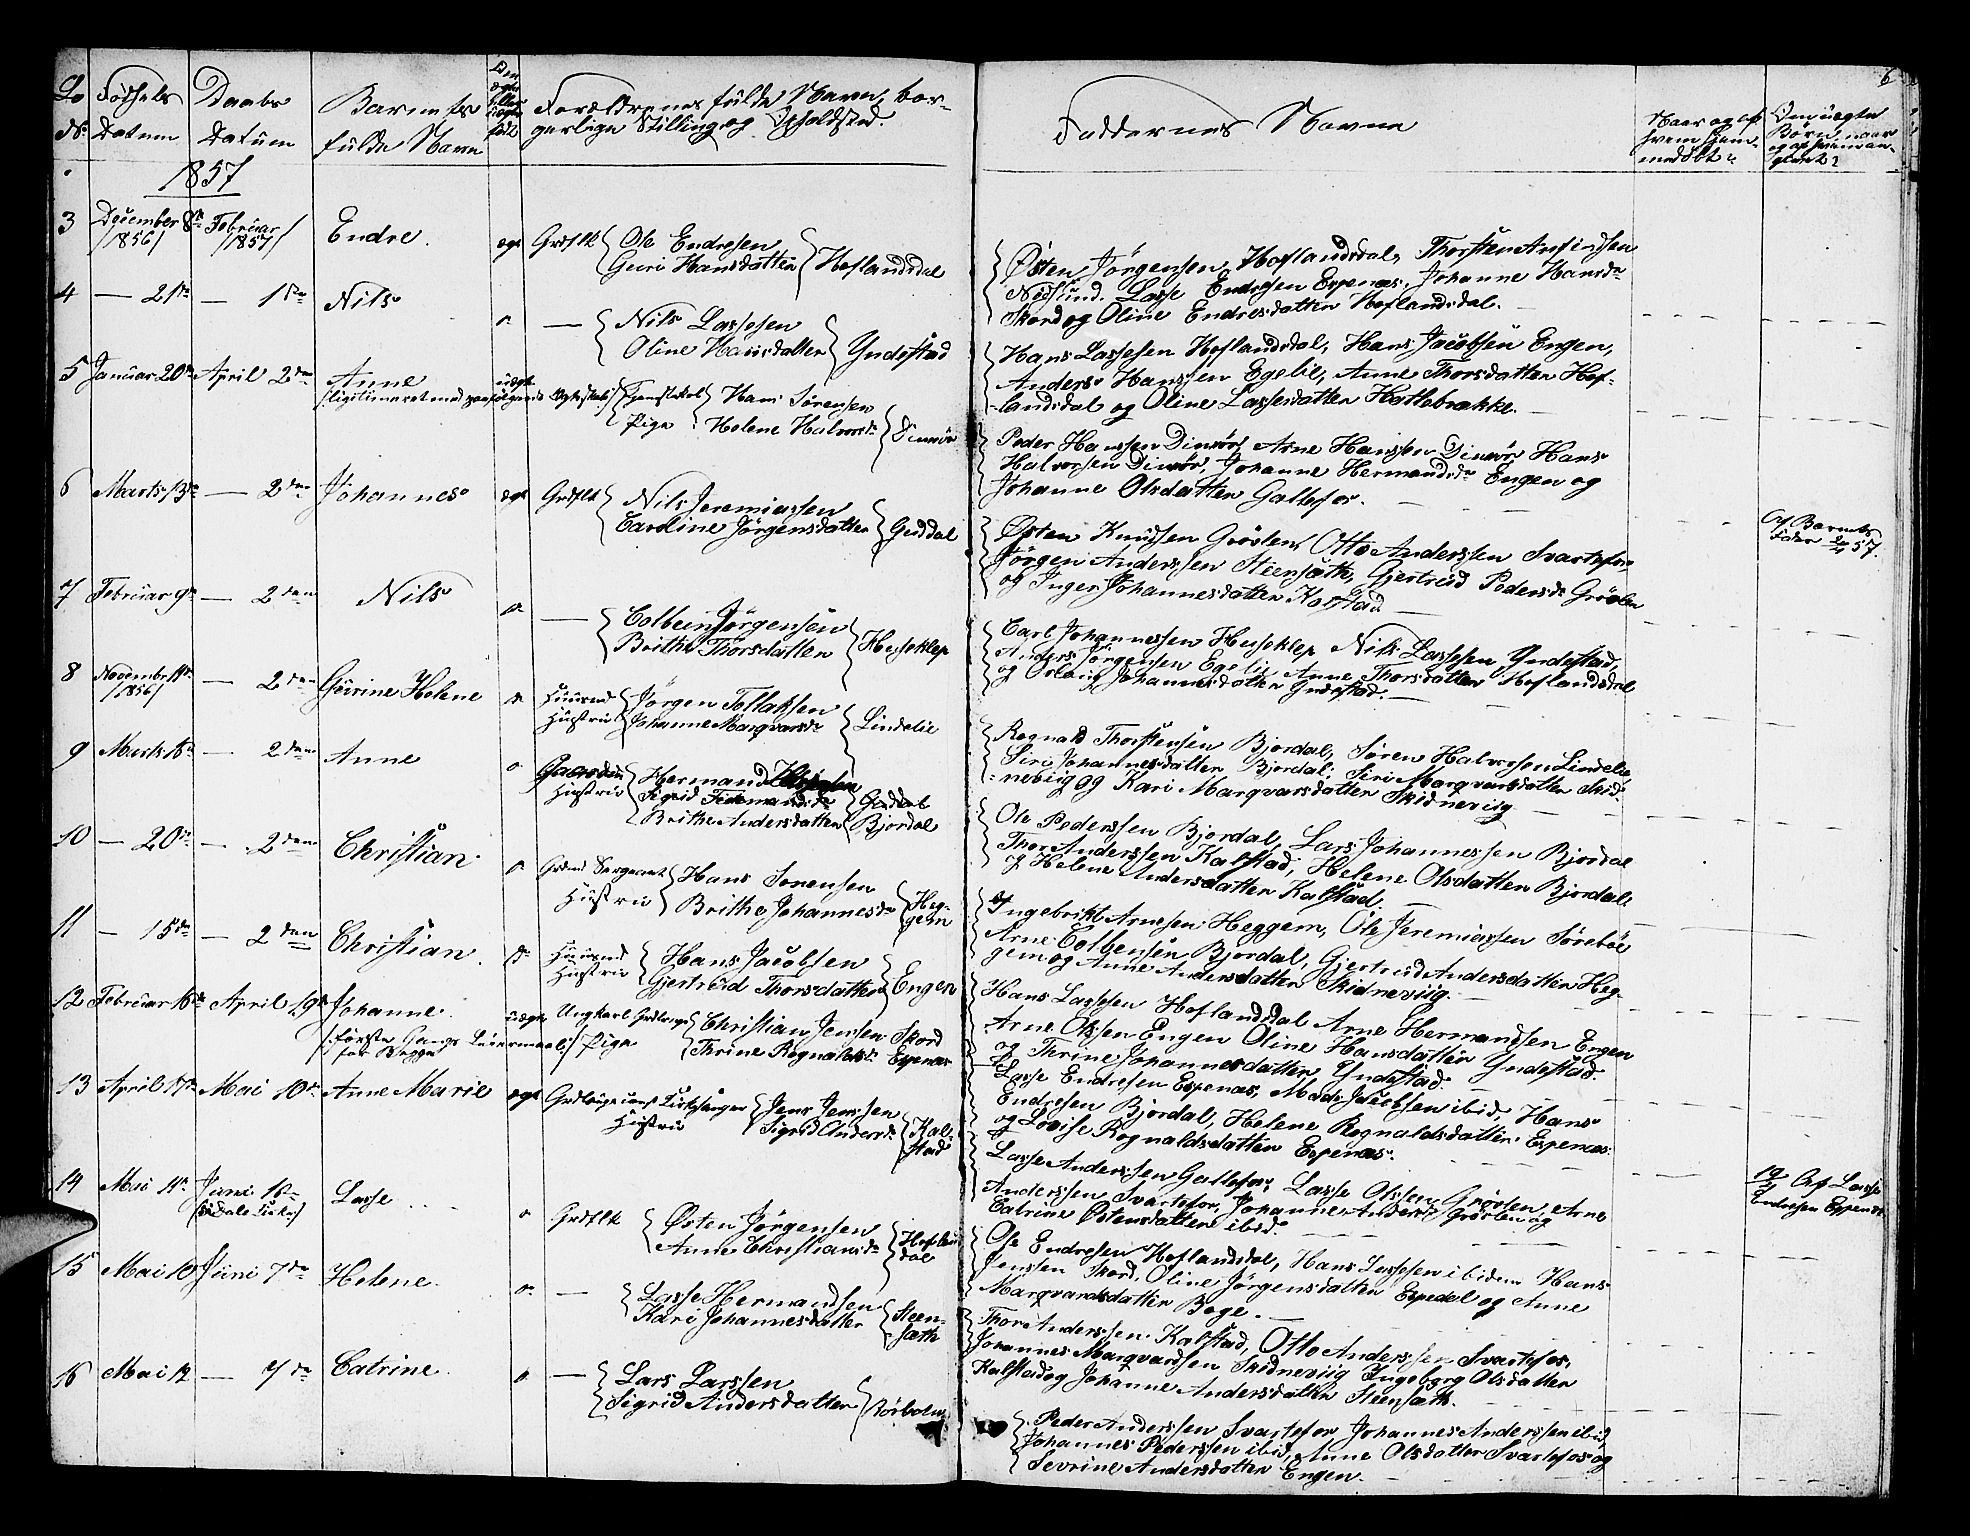 Lø No.
Fødsels Datum
Daabs Datum
Barnets fulde Navn
Om ægte eller uægte født
Forældrenes fulde Navn, borgerlige Stilling og Opholdsted.
Faddernes Navne
Naar og af hvem hjemmedøbt?
Den uægte Børn, naar og af hvem angivet?
6
1857
3 December 8de /1856/ Februar /1857/ Endre. ægt Grdflk Ole Endresen
Guri Hansdatter Hoflandsdal
Østen Jörgensen Hoflandsdal, Thorsten Amfindsen
Nedsund. Lasse Endresen Espenæs, Johanne Hansd.
Skord og Oline Endresdatter Hoflandsdal.
4 — 21de — 1ste Nils do — Nils Lassesen
Oline Hansdatter Yndestad
Hans Lassesen Hoflandsdal, Hans Jacobsen Engen,
Anders Hanssen Egelie, Anne Thorsdatter Hof-
landsdal og Oline Lassesdatter Hattebrække.
5 Januar 20de April 2den Anne uægte
/:legitimeret med paafølgende Ægteskab/ Hans Sörensen
Pige Helene Halvorsd. Dimör
Peder Hanssen Dimör, Arne Hanssen Dimör, Hans
Halvorsen Dimör, Johanne Hermandsd. Engen og
Johanne Olsdatter Gallefos.
6 Marts 13de — 2den Johannes ægt Grdflk Nils Jeremiassen
Caroline Jörgensdatter Guddal
Østen Knudsen Gröslen, Otto Anderssen Svartefos,
Jörgen Anderssen Steensæth, Gjertrud Pedersd. Gröslen
og Inger Johannesdatter Kalstad
Af Barnets
Fader 20/4 57.
7 Februar 9de — 2den Nils do — Colbein Jörgensen
Brithe Thorsdatter Huseklep
Carl Johannessen Huseklep, Nils Lassesen Yndestad,
Anders Jörgensen Egelie, Anne Thorsdatter Hoflandsdal
og Johannesdatter Yndestad.
8 Novembr 11te /1856/ — 2den Gurine Helene do Huusmd Jörgen Tollaksen
Hustru Johanne Marqvarsd. Lindelie
Rognald Thorstensen Bjordal, Sören Halvorsen Lindelie,
Siri Johannesdatter Bjordal, Siri Marqvarsdatter Skid-
neviig og Kari Marqvarsdatter Skidneviig
9 Marts 18de — 2den Anne do Hermand
Hustru Sigrid
Brithe Andersdatter Guddal
Bjordal
Ole Pederssen Bjordal, Lars Johannessen Bjordal
Thor Anderssen Kalstad, Helene Olsdatter Bjordal
og Helene Andersdatter Kalstad.
10 — 20de — 2den Christian. do Grdmd Sergeant Hans Sörensen
Hustru Brithe Johannesd. Heg-
gem
Ingebrikt Arnesen Heggem, Ole Jeremiassen Sörebøe
Arne Colbensen Bjordal, Gjertrud Andersdatter Heg-
gem og Anne Andersdatter Skidneviig.
11 — 15de — 2den Christian. do Huusmd Hans Jacobsen
Hustru Gjertrud Thorsdatter Engen
Hans Lassesen Hoflandsdal Arne Hermandsen Engen
Arne Olssen Engen Oline Hansdatter Yndestad
og Thrine Johannesdatter Yndestad.
12 Februar 18de April 19de Johanne. uægte Ungkarl Christian Jenssen Skord
/:første Gangs Leiermaal for Begge:/ Pige Thrine Rognaldsd. Espenæs
Lasse Endresen Espenæs, Mads Jacobsen ibid, Hans
Endresen Bjordal, Helene Rognaldsdatter Espenæs
og Lovise Rognaldsdatter Espenæs.
19/4 Af Lasse
Endresen Espenæs
13 April 17de Mai 10de Anne Marie ægt Kirkesanger Jens Jenssen
Hustru Sigrid Andersd. Kal-
stad
Lasse Anderssen Gallefos, Lasse Olssen Gröslen, Arne
Anderssen Svartefos, Johanne Andersd. Gröslen og
Catrine Østensdatter ibid.
14 Mai 11te Juni 1ste
/i Dale Kirke/ Lasse do Grdflk Østen Jörgensen
Anne Christiansd. Hoflands-
dal
Ole Endresen Hoflandsdal, Hans Lassesen ibidem Hans
Jenssen Skord, Oline Jörgensdatter Espedal og Anne
Marqvardsdatter Boge.
15 Mai 10 Juni 7de Helene. do — Lasse Hermandsen
Kari Johannesdatter Steen-
sæth
Thor Anderssen Kalstad, Otto Anderssen Svartefos,
Johannes Marqvardsen Skidneviig Ingeborg Olsdatter
Kalstad og Johanne Andersdatter Steensæth.
16 Mai 12 — 7de Catrine. do — Lars Larssen
Sigrid Andersdatter
Peder Anderssen Svartefos, Johannes Anderssen ibid,
Johannes Pederssen ibid, Anne Olsdatter Svartefos og
Sevrine Andersdatter Engen.